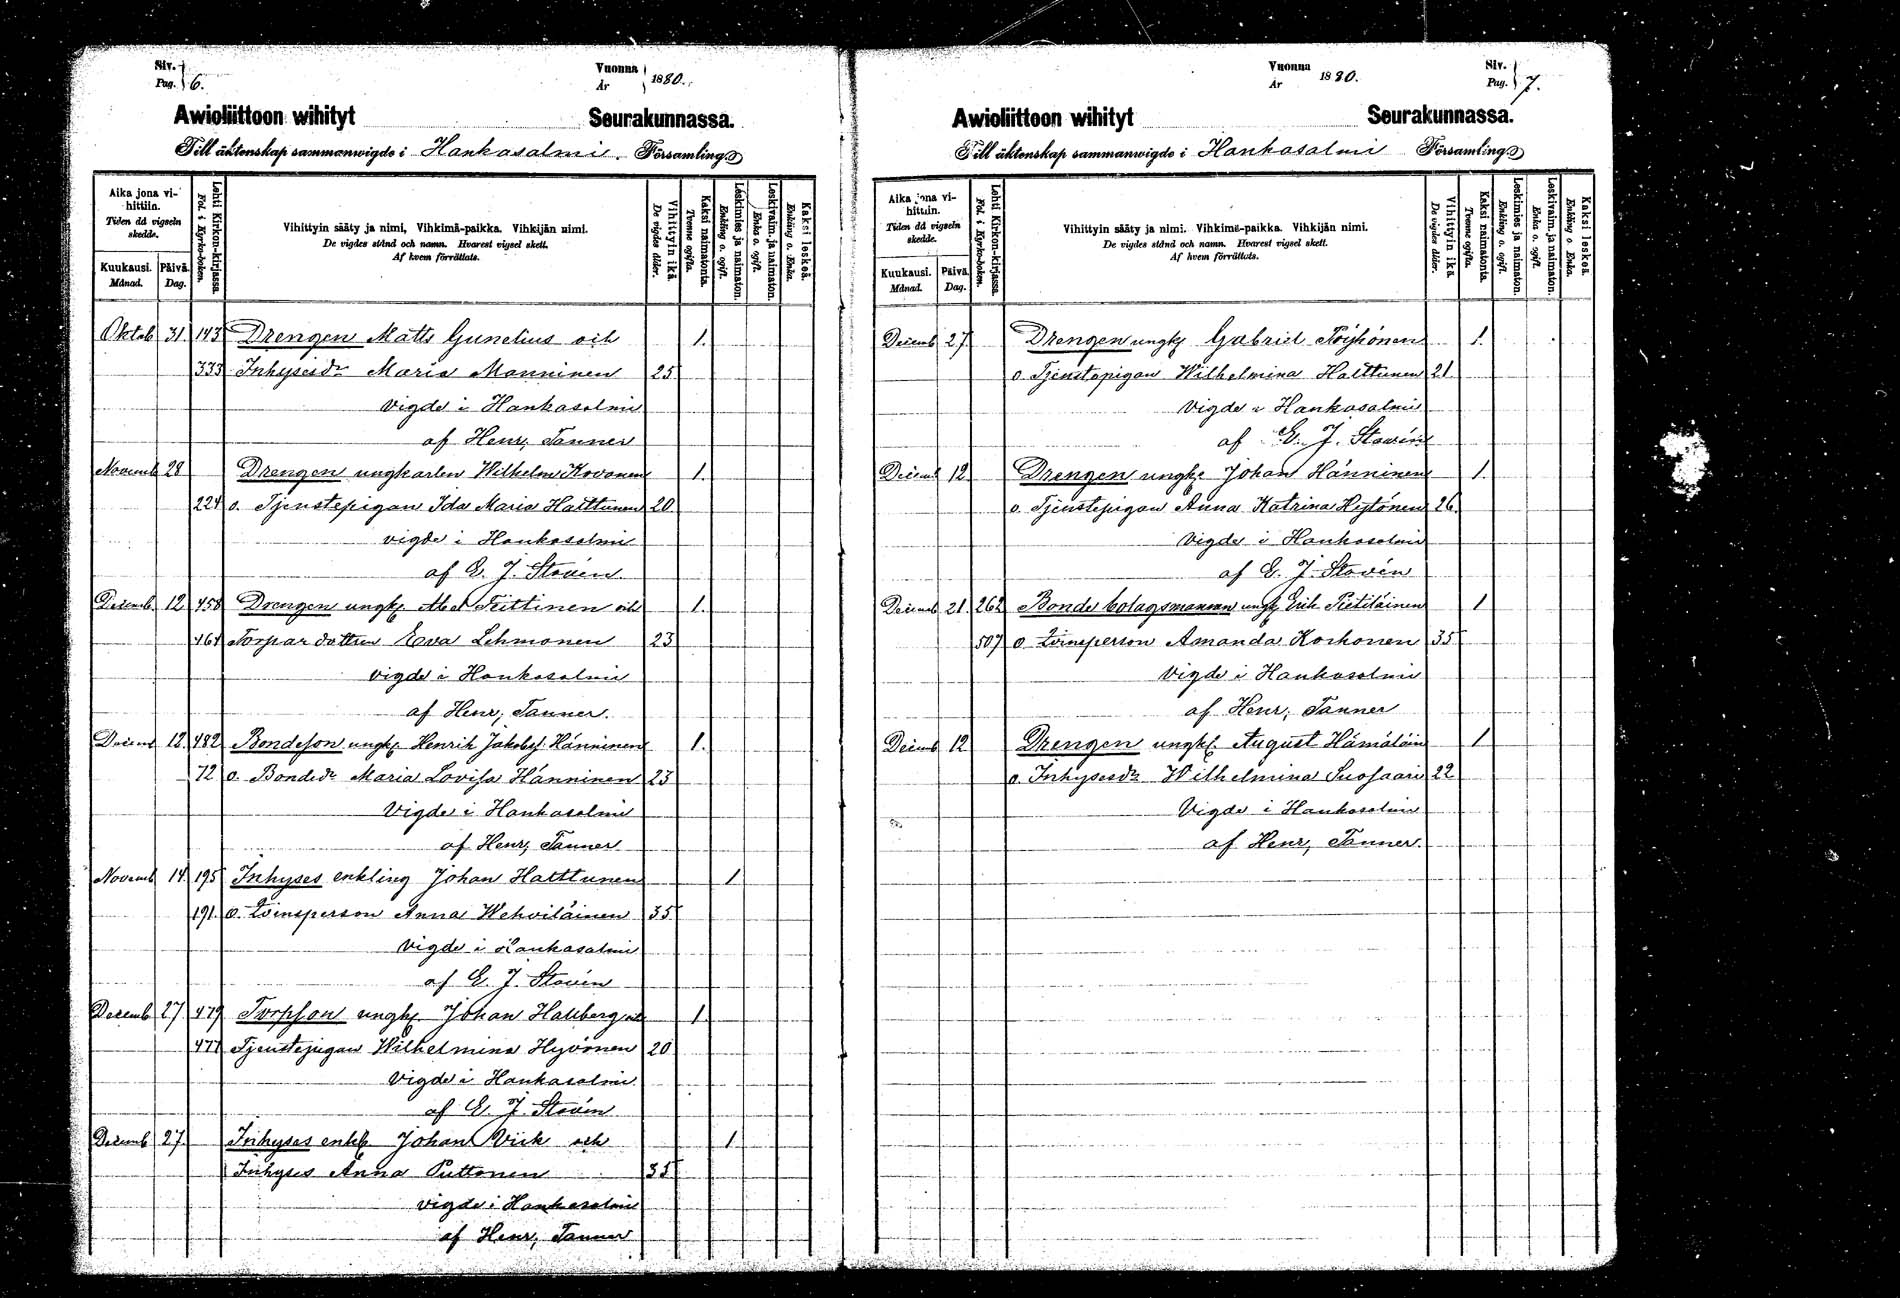 Siv. Pag. 6.
Vuonna År 1880.
Awioliittoon wihityt Seurakunnassa.
Till äktenskap sammanwigde i Hankasalmi. Församling
Aika jona vihittiin.
Tiden då vigseln skedde.
Kuukausi. Månad.
Päivä. Dag.
Lehti Kirkon-kirjassa. Fol. i Kyrko-boken.
Vihittyin sääty ja nimi, Vihkimä-paikka. Vihkijän nimi.
De vigdes stånd och namn. Hvarest vigsel skett.
Af hvem förrättats.
Vihittyin ikä. De vigdes ålder.
Kaksi naimatonta. Tvenne ogifta.
Leskimies ja naimaton. Enkling o. ogift.
Leskivaim. ja naimaton. Enka o. ogift.
Kaksi leskeä. Enkling o. Enka.
Oktob 31 143 Drengen Matts Gunelius och 1.
333 Inhysesdr Maria Manninen 25
vigde i Hankasalmi
af Henr, Tanner
Novemb 28 Drengen ungkarlen Wilhelm Kovanen 1.
224 o. Tjenstepigan Ida Maria Halttunen 20
vigde i Hankasalmi
af E. J. Stovén
Decemb 12 458 Drengen ungk. Abel Tiittinen och 1.
464 Torpardottren Eva Lehmonen 23
vigde i Hankasalmi
af Henr, Tanner.
Decemb 12 482 Bondeson ungk. Henrik Jakobs. Hänninen 1.
72 o. Bondedr Maria Lovisa Hänninen 23
Vigde i Hankasalmi
af Henr, Tanner
Novemb 14 195 Inhyses enkling Johan Halttunen 1
191. o. qvinsperson Anna Wehviläinen 35
Vigde i Hankasalmi
af E. J. Stovén
Decemb 27 479 Torpson ungk. Johan Hallberg och 1
477 Tjenstepigan Wilhelmina Hyvönen 20
Vigde i Hankasalmi
af E. J. Stovén
Decemb 27. Inhyses enkl. Johan Viik och 1
Inhyses Anna Puttonen 35
vigde i Hankasalmi
af Henr, Tanner
Vuonna År 1880.
Siv. Pag. 7.
Awioliittoon wihityt Seurakunnassa.
Till äktenskap sammanwigde i Hankasalmi Församling
Aika jona vihittiin.
Tiden då vigseln skedde.
Kuukausi. Månad.
Päivä. Dag.
Lehti Kirkon-kirjassa. Fol. i Kyrko-boken.
Vihittyin sääty ja nimi. Vihkimä-paikka. Vihkijän nimi.
De vigdes stånd och namn. Hvarest vigsel skett.
Af hvem förrättats.
Vihittyin ikä. De vigdes ålder.
Kaksi naimatonta. Tvenne ogifta.
Leskimies ja naimaton. Enkling o. ogift.
Leskivaim. ja naimaton. Enka o. ogift.
Kaksi leskeä. Enkling o. Enka.
Decemb 27. Drengen ungk Gabriel Pöyhönen 1.
o. Tjenstepigan Wilhelmina Halttunen 21
Vigde i Hankasalmi
af E. J. Stovén
Decemb 12 Drengen ungk. Johan Hänninen 1.
o. Tjenstepigan Anna Katrina Hytönen 26.
Vigde i Hankasalmi
af E. J. Stovén
Decemb 21. 262 Bonde bolagsmannen ungk Erik Pietiläinen 1
507 o qvinsperson Amanda Korhonen 35
Vigde i Hankasalmi
af Henr, Tanner
Decemb 12 Drengen ungk. August Hämäläin 1
o Inhysesdr Wilhelmina Suosaari 22
Vigde i Hankasalmi
af Henr, Tanner